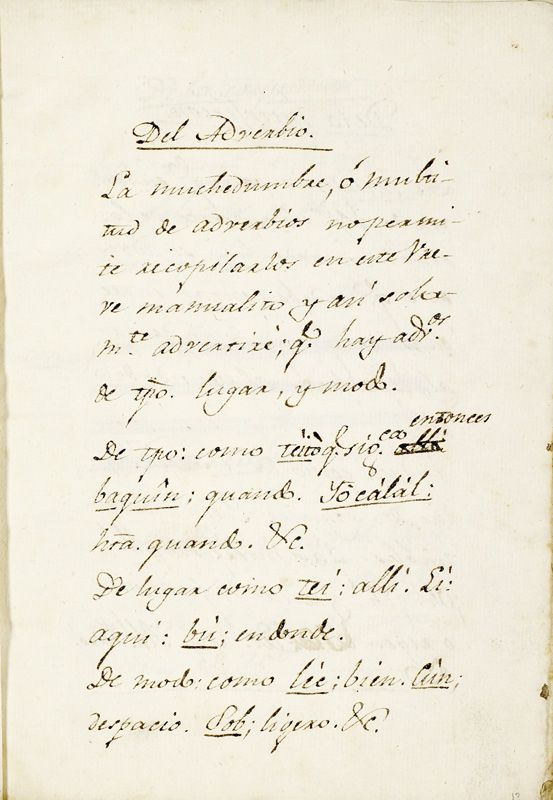 Del Adverbio.
La muchedumbre, ó multi-
tud de adverbios no permi-
te recopilarlos en este Vre-
ve manualito y así sola-
m.te advertiré; q.e hay adv.os
de tpo. lugar, y modo.
entonces
De tpo: como q.e sig.ca allí
baquín; quando. Yò cálál:
hta. quando. &c.
De lugar como teí: allí. Li:
aquí: bú; endonde.
De modo: como léc; bien. Cún;
despacio. Sob; ligero. &c.